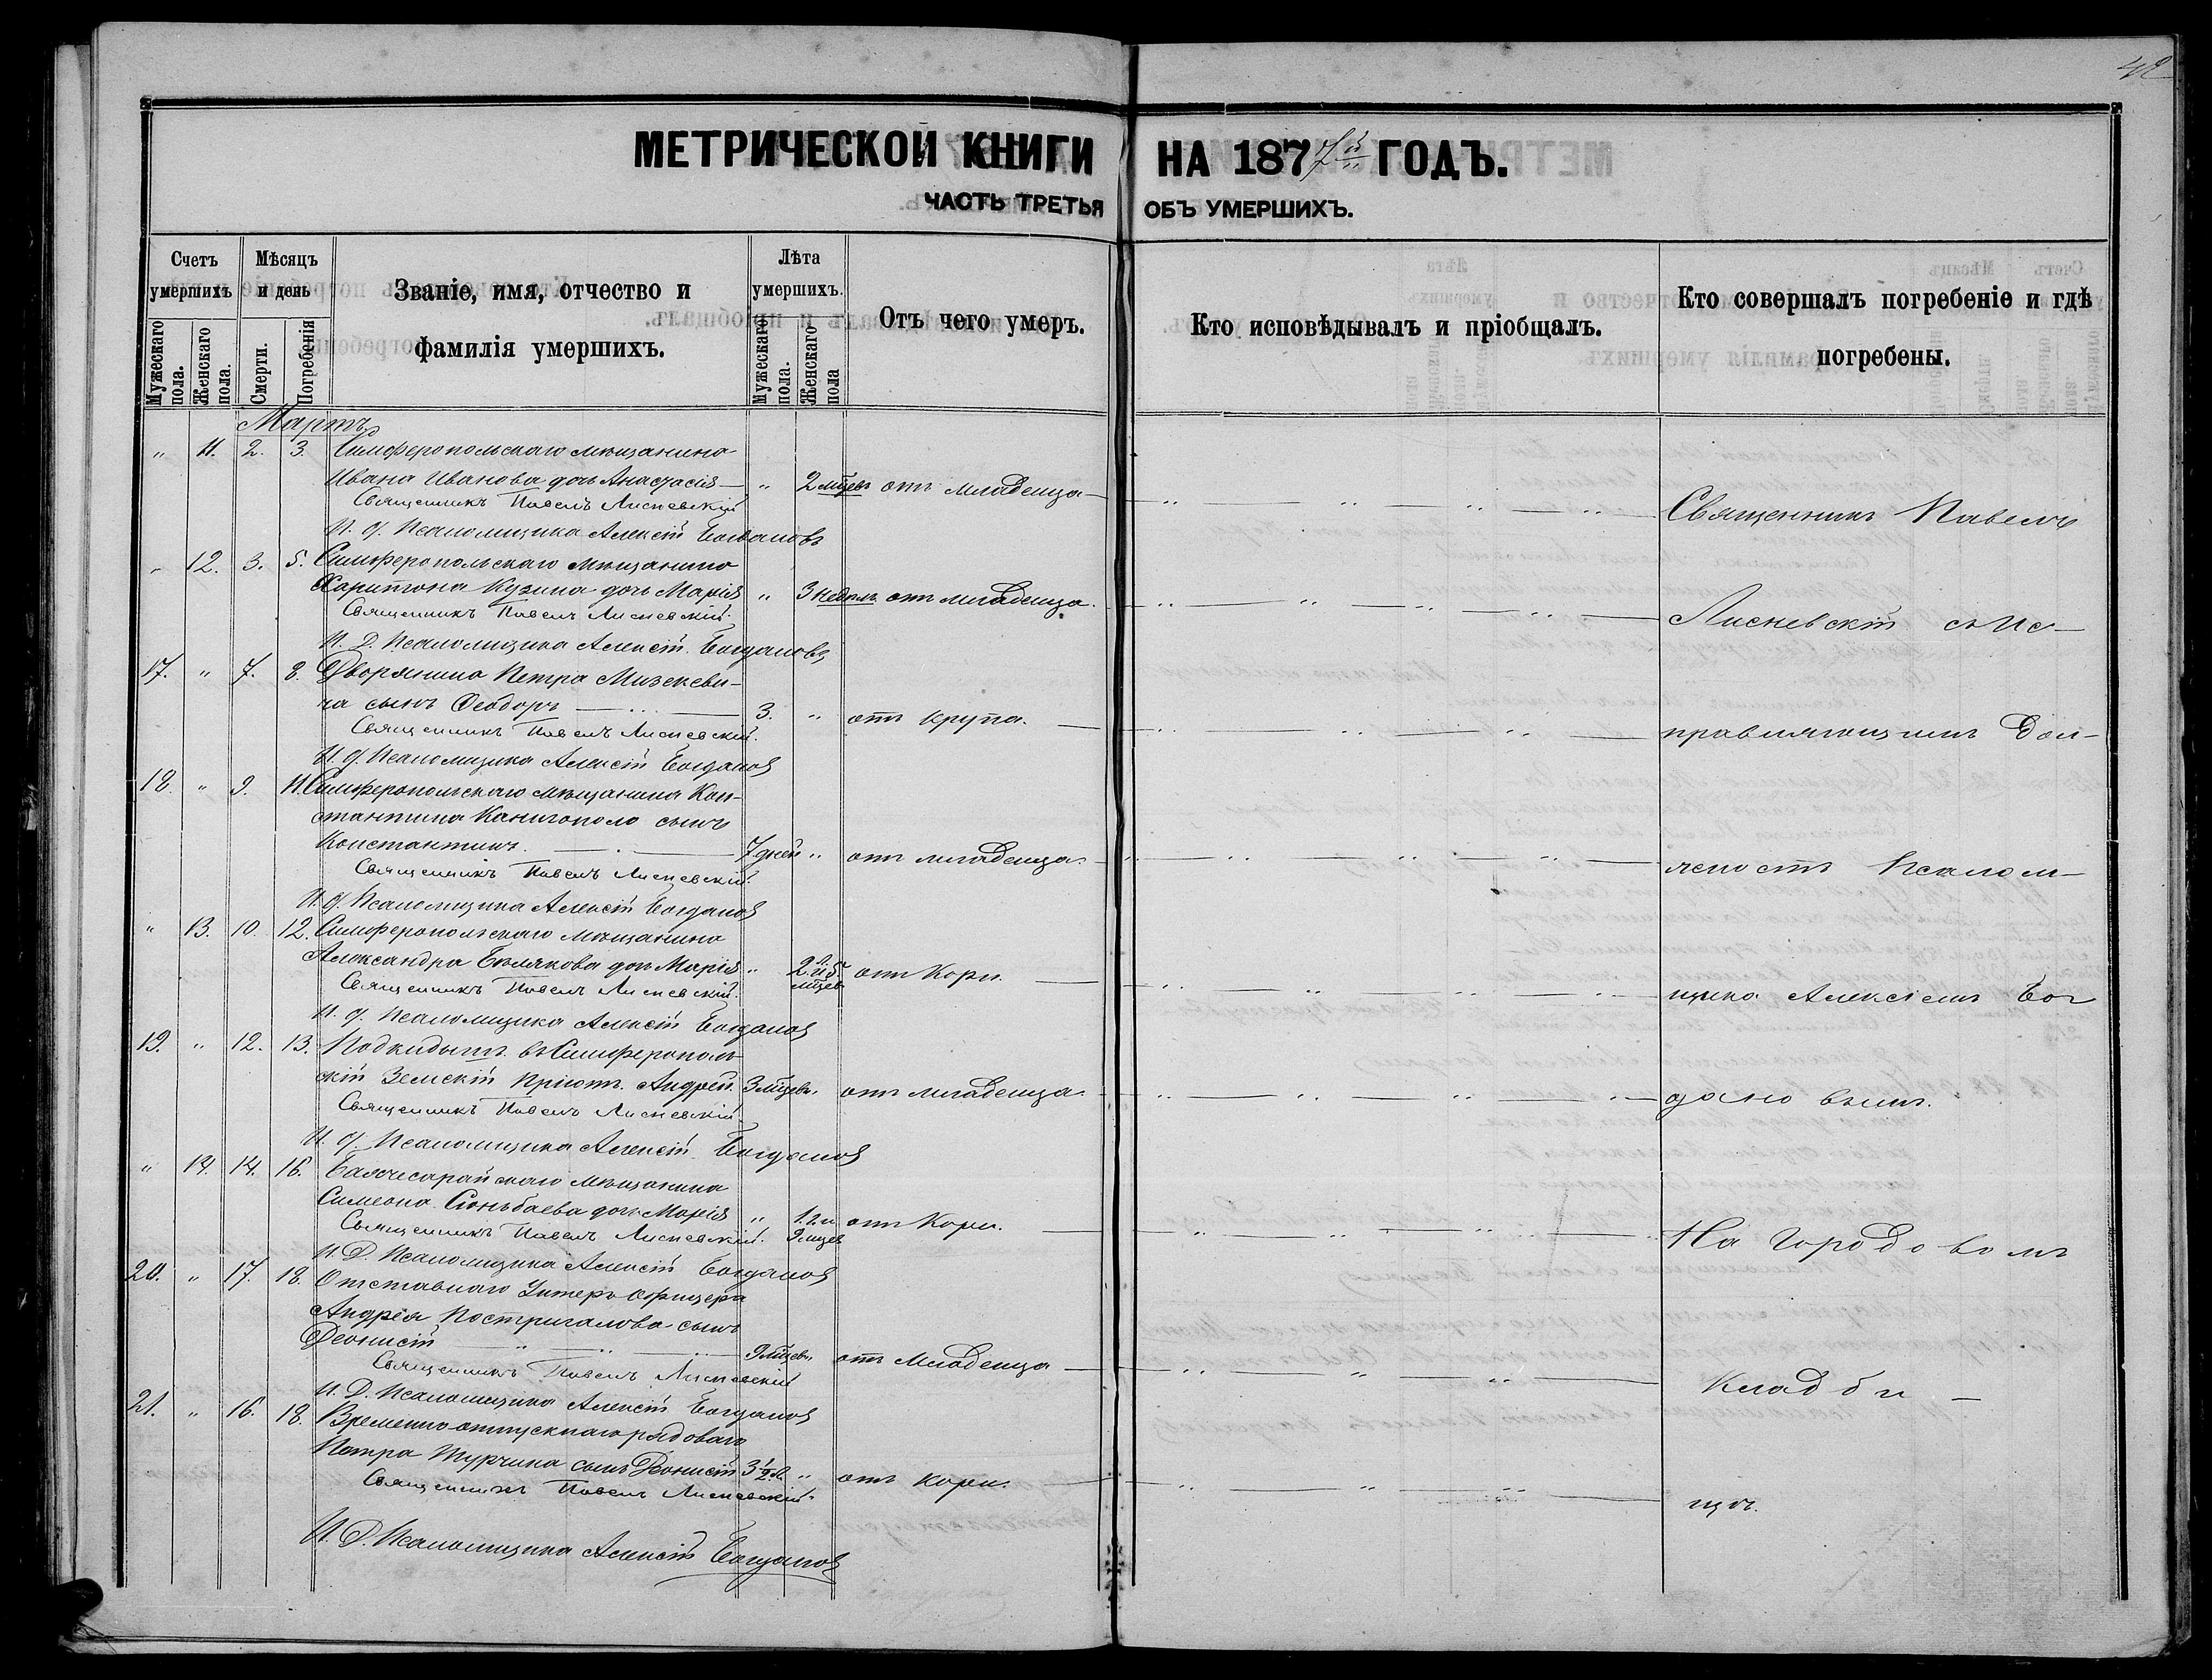 42
МЕТРИЧЕСКОЙ КНИГИ НА 1877й ГОДЪ.
ЧАСТЬ ТРЕТЬЯ ОБЪ УМЕРШИХЪ.
Счетъ умершихъ
Мужескаго пола.
Женскаго пола.
Мѣсяцъ и день
Смерти.
Погребенія
Званіе, имя, отчество и
фамилія умершихъ.
Лѣта умершихъ.
Мужескаго пола.
Женскаго пола
Отъ чего умеръ.
Кто исповѣдывалъ и пріобщалъ.
Кто совершалъ погребеніе и гдѣ
погребены.
Мартъ
" 11. 2. 3. Симферопольскаго мѣщанина
Ивана Иванова дочь Анастасія — " 2 мѣцевъ отъ младенца —
Священникъ Павелъ Лисневскій
И. д. Псаломщика Алексій Богдановъ
Священникъ Павелъ
" 12. 3. 5. Симферопольскаго мѣщанина
Харитона Кузина дочь Марія " 3 недѣлъ отъ младенца.
Священникъ Павелъ Лисневскій.
И. Д. Псаломщика Алексій Богдановъ
Лисневскій съ Ис-
17. " 7. 8. Дворянина Петра Мизекеви-
ча сынъ Ѳеодоръ — 3. " отъ крупа.
Священникъ Павелъ Лисневскій.
И. д. Псаломщика Алексій Богдановъ
правляющимъ Дол-
18. " 9. 11. Симферопольскаго мѣщанина Кон-
стантина Канигополо сынъ
Константинъ. — 7 дней " отъ младенца.
Священникъ Павелъ Лисневскій.
И. д. Псаломщика Алексій Богдановъ
жность Псалом-
" 13. 10. 12. Симферопольскаго мѣщанина
Александра Бѣлякова дочь Марія " 2 л. и 6 мѣцев отъ Кори.
Священникъ Павелъ Лисневскій.
И. д. Псаломщика Алексій Богдановъ
щика Алексіемъ Бог
19. " 12. 13. Подкидышъ въ Симферополь-
скій Земскій Пріютъ Андрей. 3 мѣцевъ. отъ младенца.
Священникъ Павелъ Лисневскій.
И. д. Псаломщика Алексій Богдановъ
дановымъ.
" 14. 14. 16. Бахчисарайскаго мѣщанина
Симеона дочь Марія " 1. г. и 9 мѣцев отъ Кори.
Священникъ Павелъ Лисневскій.
И. Д. Псаломщика Алексій Богдановъ
На Городовомъ
20. " 17. 18. Отставнаго Унтеръ-офицера
Андрея Постригалова сынъ
Деонисій — 9 мѣцевъ, отъ Младенца —
Священникъ Павелъ Лисневскій
И. Д. Псаломщика Алексій Богдановъ
Кладби —
21. " 16. 18. Временно-отпускнаго рядоваго
Петра Турчина сынъ Деонисій 3½ л. " отъ кори.
Священникъ Павелъ Лисневскій.
И. Д. Псаломщика Алексій Богдановъ
щѣ.